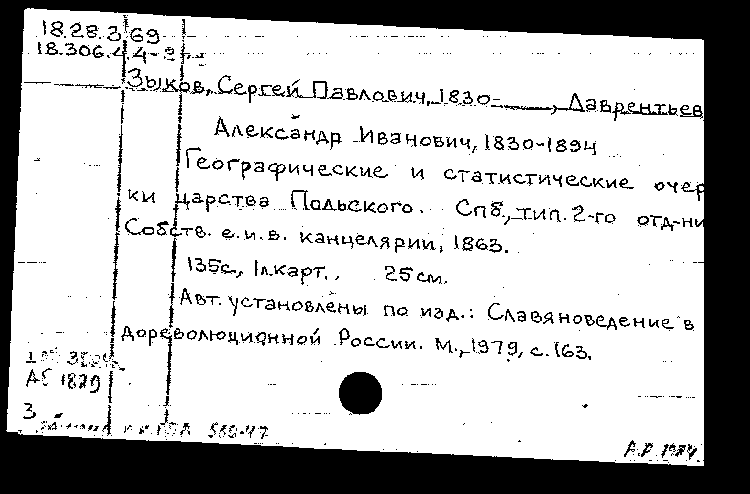 18.28.3.69
18.306.4.4-2
Зыков, Сергей Павлович, 1830-____, Лаврентьев
Александр Иванович, 1830-1894
Географические и статистические очер
ки царства Польского. Спб., тип. 2-го отд-ни
Собств. е.и.в. канцелярии, 1863.
135с., 1л.карт., 25см.
Авт. установлены по изд.: Славяноведение в
дореволюционной России. М., 1979, с. 163.
АБ 1829
3
560-47
А.Р. 1984